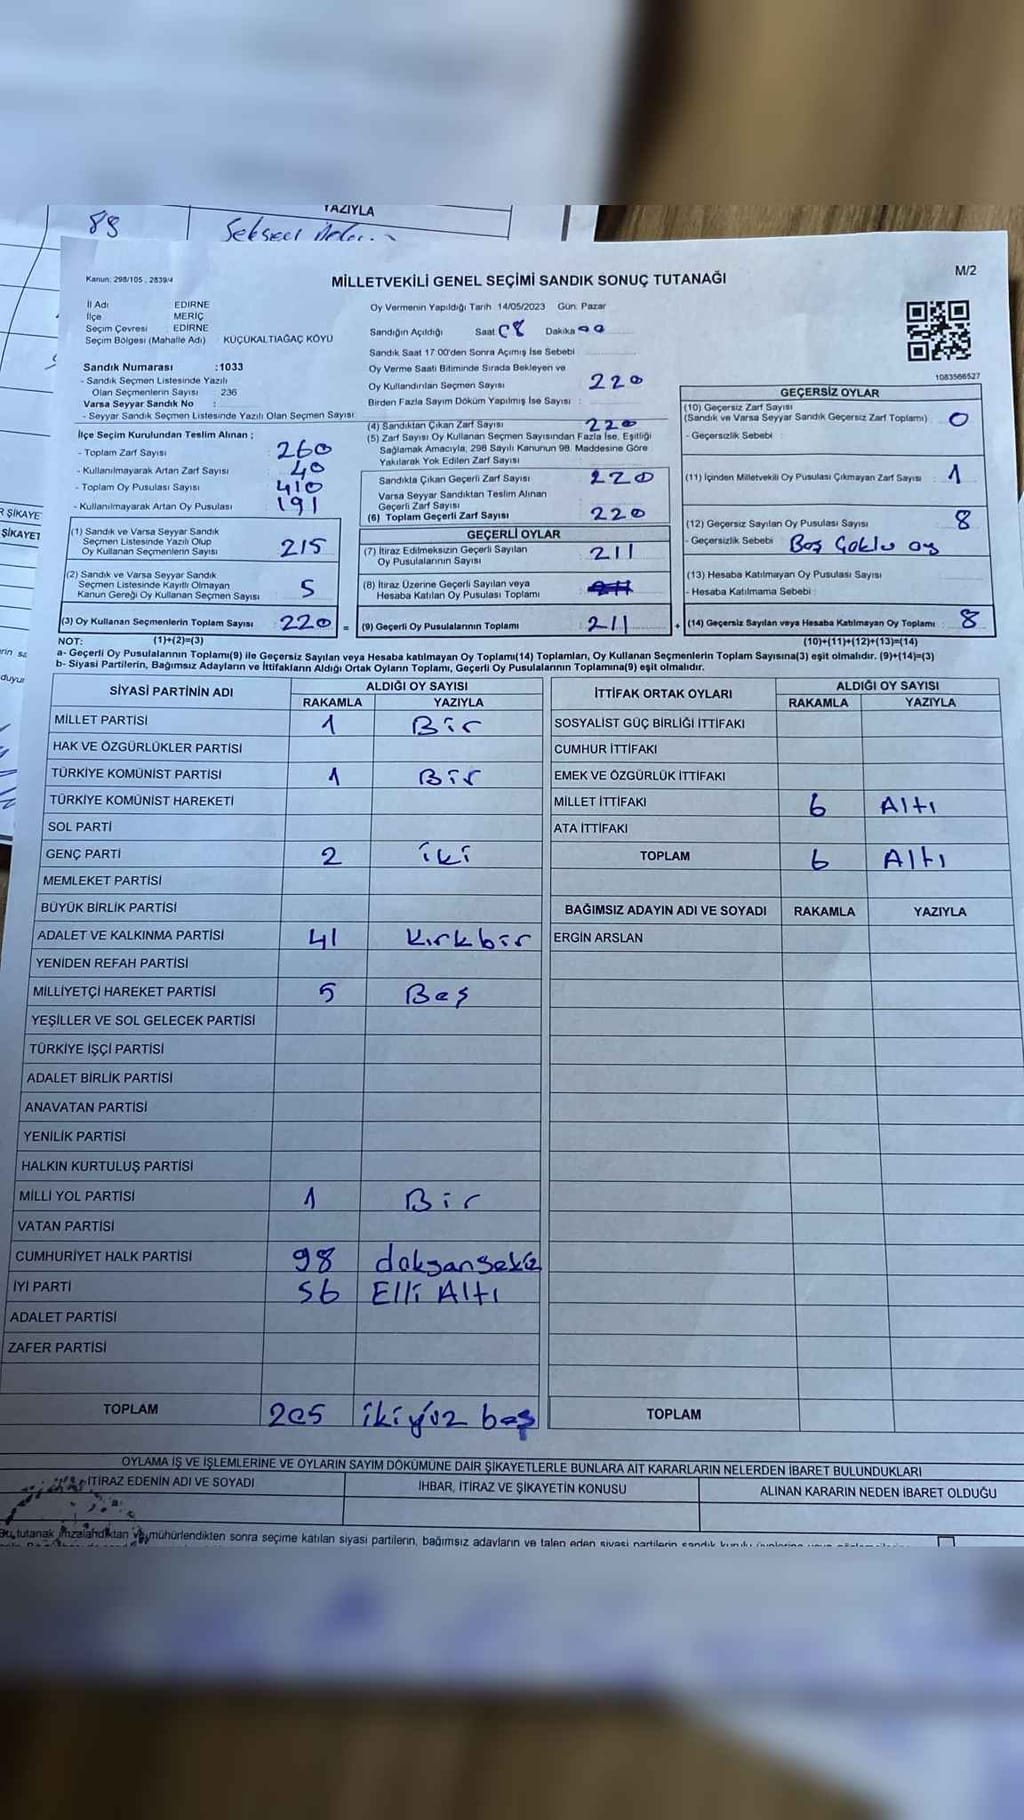 YAZIYLA
88
Kanun: 298/105 , 2839/4
MİLLETVEKİLİ GENEL SEÇİMİ SANDIK SONUÇ TUTANAĞI
M/2
İl Adı EDİRNE
İlçe MERİÇ
Seçim Çevresi EDİRNE
Seçim Bölgesi (Mahalle Adı) KÜÇÜKALTIAĞAÇ KÖYÜ
Oy Vermenin Yapıldığı Tarih 14/05/2023 Gün: Pazar
Sandığın Açıldığı Saat 08 Dakika 00
Sandık Saat 17:00'den Sonra Açılmış İse Sebebi
Oy Verme Saati Bitiminde Sırada Bekleyen ve
Oy Kullandırılan Seçmen Sayısı 220
Birden Fazla Sayım Döküm Yapılmış İse Sayısı :
1083566527
Sandık Numarası :1033
- Sandık Seçmen Listesinde Yazılı
Olan Seçmenlerin Sayısı : 236
Varsa Seyyar Sandık No :
- Seyyar Sandık Seçmen Listesinde Yazılı Olan Seçmen Sayısı:
İlçe Seçim Kurulundan Teslim Alınan ;
- Toplam Zarf Sayısı 260
- Kullanılmayarak Artan Zarf Sayısı 40
- Toplam Oy Pusulası Sayısı 410
- Kullanılmayarak Artan Oy Pusulası 191
(1) Sandık ve Varsa Seyyar Sandık
Seçmen Listesinde Yazılı Olup
Oy Kullanan Seçmenlerin Sayısı 215
(2) Sandık ve Varsa Seyyar Sandık
Seçmen Listesinde Kayıtlı Olmayan
Kanun Gereği Oy Kullanan Seçmen Sayısı 5
(3) Oy Kullanan Seçmenlerin Toplam Sayısı 220 =
(4) Sandıktan Çıkan Zarf Sayısı 220
(5) Zarf Sayısı Oy Kullanan Seçmen Sayısından Fazla İse, Eşitliği
Sağlamak Amacıyla, 298 Sayılı Kanunun 98. Maddesine Göre
Yakılarak Yok Edilen Zarf Sayısı
Sandıkta Çıkan Geçerli Zarf Sayısı 220
Varsa Seyyar Sandıktan Teslim Alınan
Geçerli Zarf Sayısı
(6) Toplam Geçerli Zarf Sayısı 220
GEÇERLİ OYLAR
(7) İtiraz Edilmeksizin Geçerli Sayılan
Oy Pusulalarının Sayısı 211
(8) İtiraz Üzerine Geçerli Sayılan veya
Hesaba Katılan Oy Pusulası Toplamı
(9) Geçerli Oy Pusulalarının Toplamı 211 +
GEÇERSİZ OYLAR
(10) Geçersiz Zarf Sayısı
(Sandık ve Varsa Seyyar Sandık Geçersiz Zarf Toplamı) 0
- Geçersizlik Sebebi :
(11) İçinden Milletvekili Oy Pusulası Çıkmayan Zarf Sayısı 1
(12) Geçersiz Sayılan Oy Pusulası Sayısı 8
- Geçersizlik Sebebi Boş Çoklu oy
(13) Hesaba Katılmayan Oy Pusulası Sayısı
- Hesaba Katılmama Sebebi :
(14) Geçersiz Sayılan veya Hesaba Katılmayan Oy Toplamı 8
NOT: (1)+(2)=(3)
(10)+(11)+(12)+(13)=(14)
a- Geçerli Oy Pusulalarının Toplamı(9) ile Geçersiz Sayılan veya Hesaba katılmayan Oy Toplamı(14) Toplamları, Oy Kullanan Seçmenlerin Toplam Sayısına(3) eşit olmalıdır. (9)+(14)=(3)
b- Siyasi Partilerin, Bağımsız Adayların ve İttifakların Aldığı Ortak Oyların Toplamı, Geçerli Oy Pusulalarının Toplamına(9) eşit olmalıdır.
SİYASİ PARTİNİN ADI ALDIĞI OY SAYISI
RAKAMLA YAZIYLA
MİLLET PARTİSİ 1 Bir
HAK VE ÖZGÜRLÜKLER PARTİSİ
TÜRKİYE KOMÜNİST PARTİSİ 1 Bir
TÜRKİYE KOMÜNİST HAREKETİ
SOL PARTİ
GENÇ PARTİ 2 iki
MEMLEKET PARTİSİ
BÜYÜK BİRLİK PARTİSİ
ADALET VE KALKINMA PARTİSİ 41 Kırkbir
YENİDEN REFAH PARTİSİ
MİLLİYETÇİ HAREKET PARTİSİ 5 Beş
YEŞİLLER VE SOL GELECEK PARTİSİ
TÜRKİYE İŞÇİ PARTİSİ
ADALET BİRLİK PARTİSİ
ANAVATAN PARTİSİ
YENİLİK PARTİSİ
HALKIN KURTULUŞ PARTİSİ
MİLLİ YOL PARTİSİ 1 Bir
VATAN PARTİSİ
CUMHURİYET HALK PARTİSİ 98 doksansekiz
İYİ PARTİ 56 Elli Altı
ADALET PARTİSİ
ZAFER PARTİSİ
TOPLAM 205 ikiyüz beş
İTTİFAK ORTAK OYLARI ALDIĞI OY SAYISI
RAKAMLA YAZIYLA
SOSYALİST GÜÇ BİRLİĞİ İTTİFAKI
CUMHUR İTTİFAKI
EMEK VE ÖZGÜRLÜK İTTİFAKI
MİLLET İTTİFAKI 6 Altı
ATA İTTİFAKI
TOPLAM 6 Altı
BAĞIMSIZ ADAYIN ADI VE SOYADI RAKAMLA YAZIYLA
ERGİN ARSLAN
TOPLAM
OYLAMA İŞ VE İŞLEMLERİNE VE OYLARIN SAYIM DÖKÜMÜNE DAİR ŞİKAYETLERLE BUNLARA AİT KARARLARIN NELERDEN İBARET BULUNDUKLARI
İTİRAZ EDENİN ADI VE SOYADI İHBAR, İTİRAZ VE ŞİKAYETİN KONUSU ALINAN KARARIN NEDEN İBARET OLDUĞU
Bu tutanak imzalandıktan ve mühürlendikten sonra seçime katılan siyasi partilerin, bağımsız adayların ve talep eden siyasi partilerin sandık kurulu